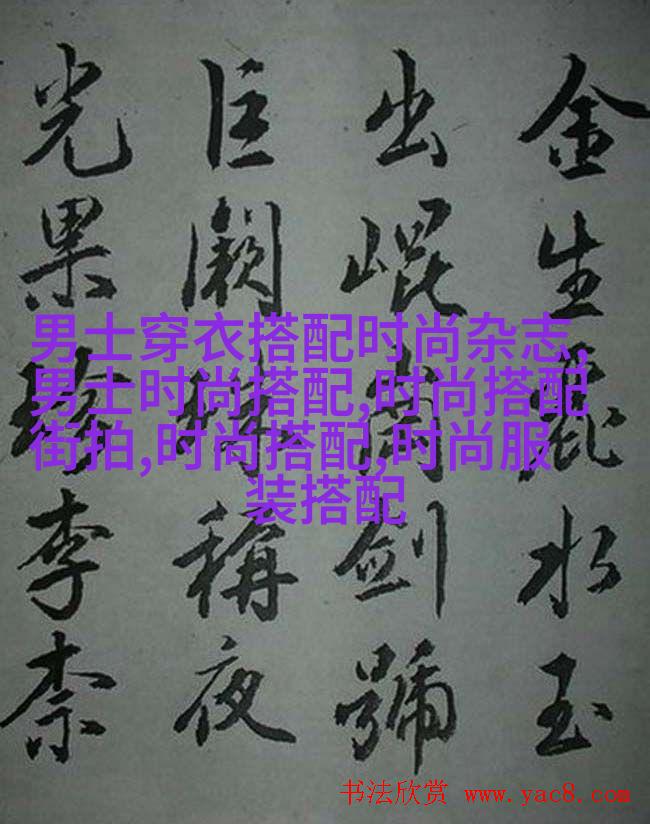 金生麗水玉
出崐岡劍號
巨闕珠稱夜
光果珍李柰
男士穿衣搭配时尚杂志,
男士时尚搭配,时尚搭配
街拍,时尚搭配,时尚服
装搭配
书法欣赏 www.yac8.com